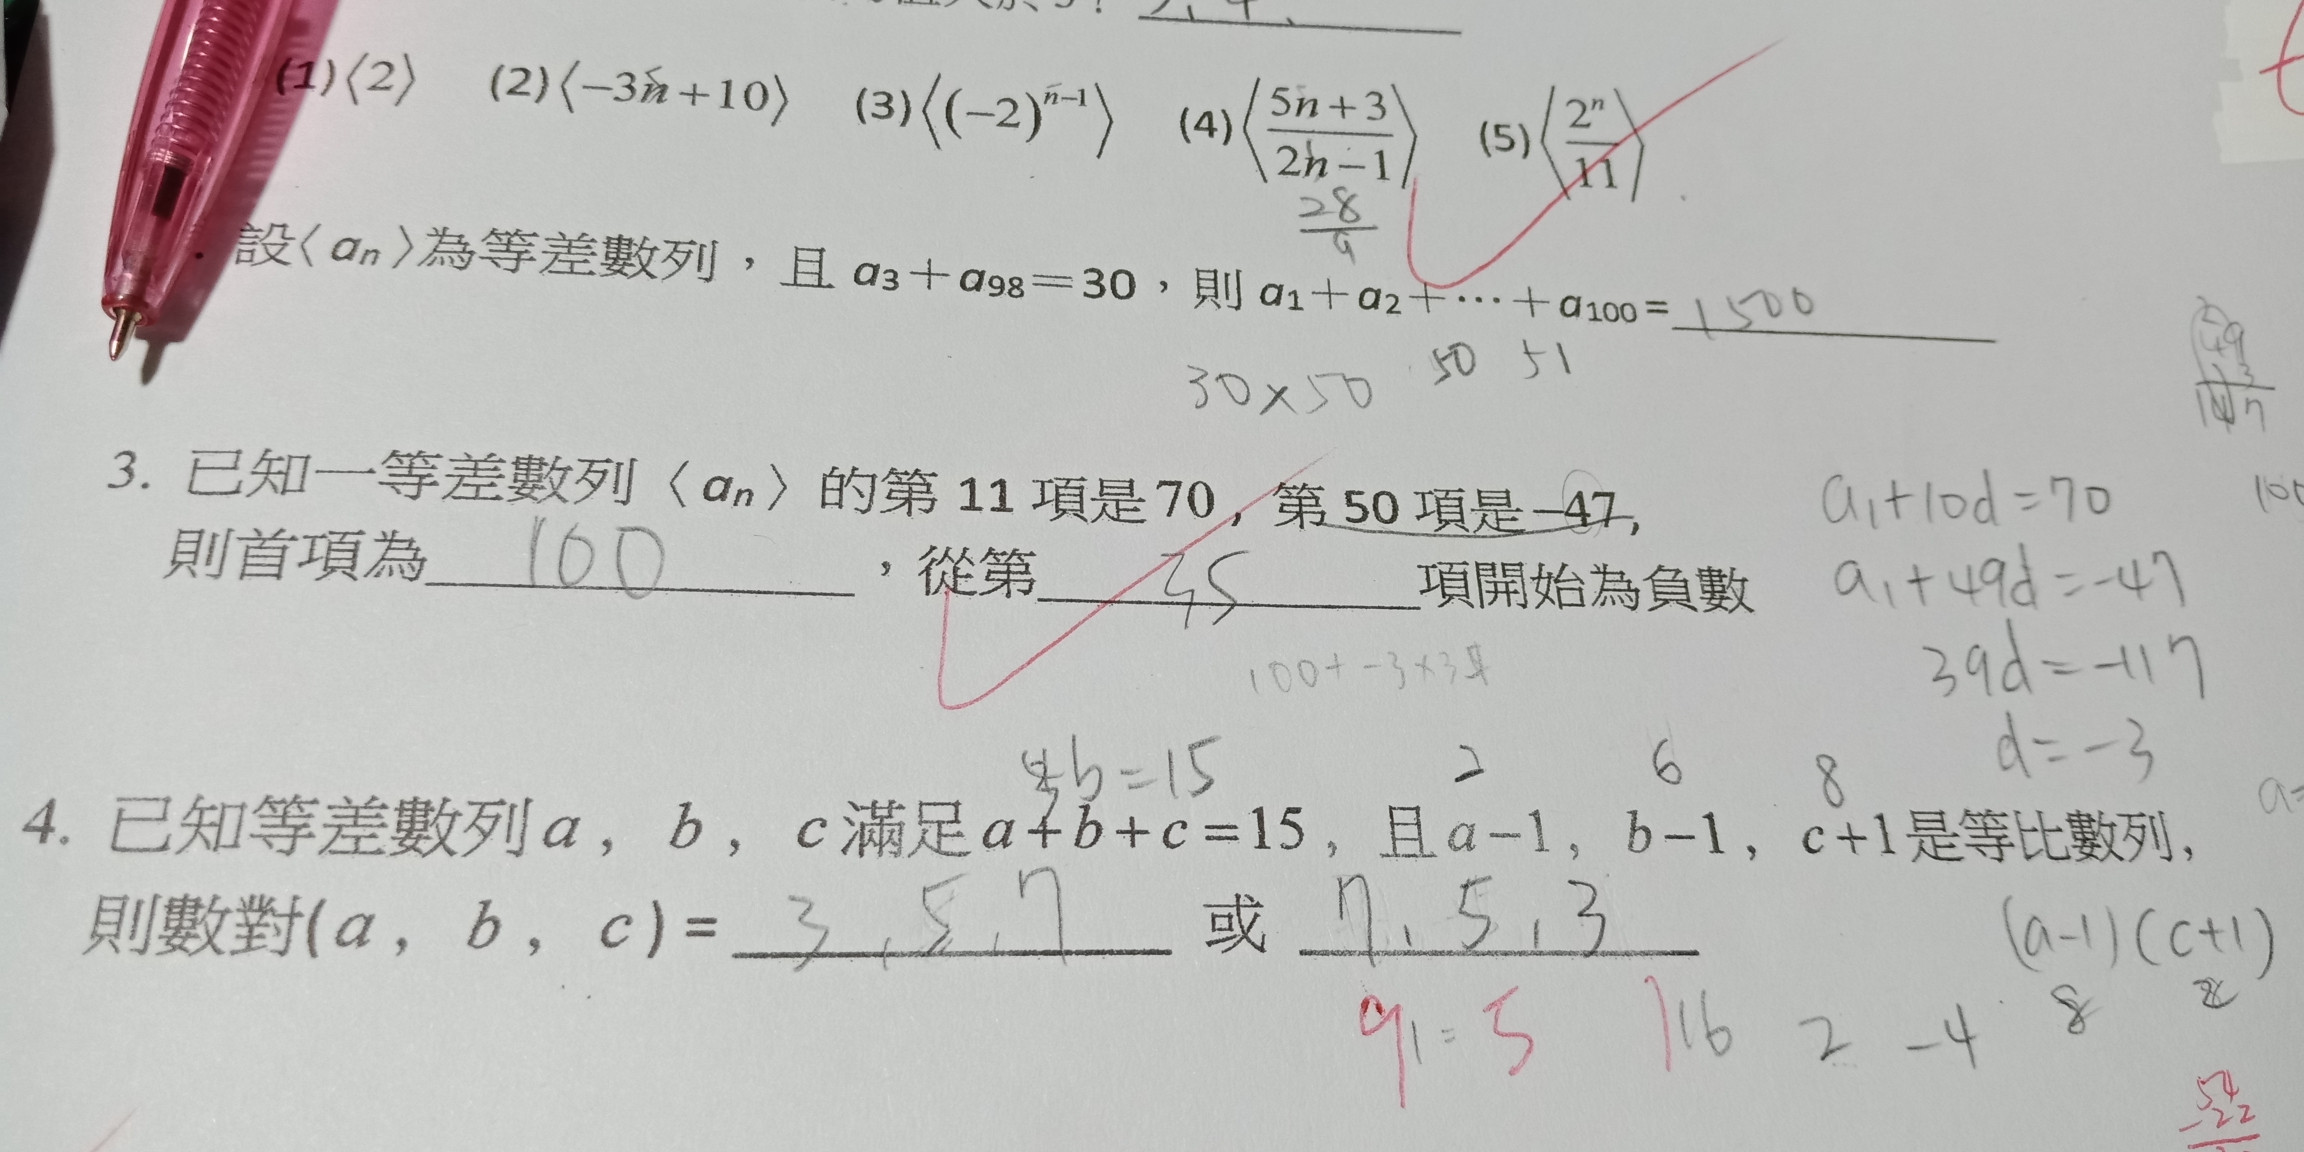 (1)⟨2⟩ (2)⟨−3n+10⟩ (3)⟨(−2)^{n−1}⟩ (4)⟨\frac{5n+3}{2n−1}⟩ (5)⟨\frac{2^n}{11}⟩
28
9
設⟨a_n⟩為等差數列，且 a_3＋a_98＝30，則 a_1＋a_2＋⋯＋a_100＝1500
30×50 50 51
3. 已知一等差數列⟨a_n⟩的第 11 項是70，第 50 項是−47,
則首項為 100 ，從第 35 項開始為負數
100+−3×34
a_1+10d=70
a_1+49d=−47
39d=−117
d=−3
b=15 2 6 8
4. 已知等差數列a，b，c滿足a+b+c=15，且a−1，b−1，c+1是等比數列,
則數對(a，b，c)= 3,5,7 或 7,5,3
(a−1)(c+1)
8 2
16 2 −4
54
−22